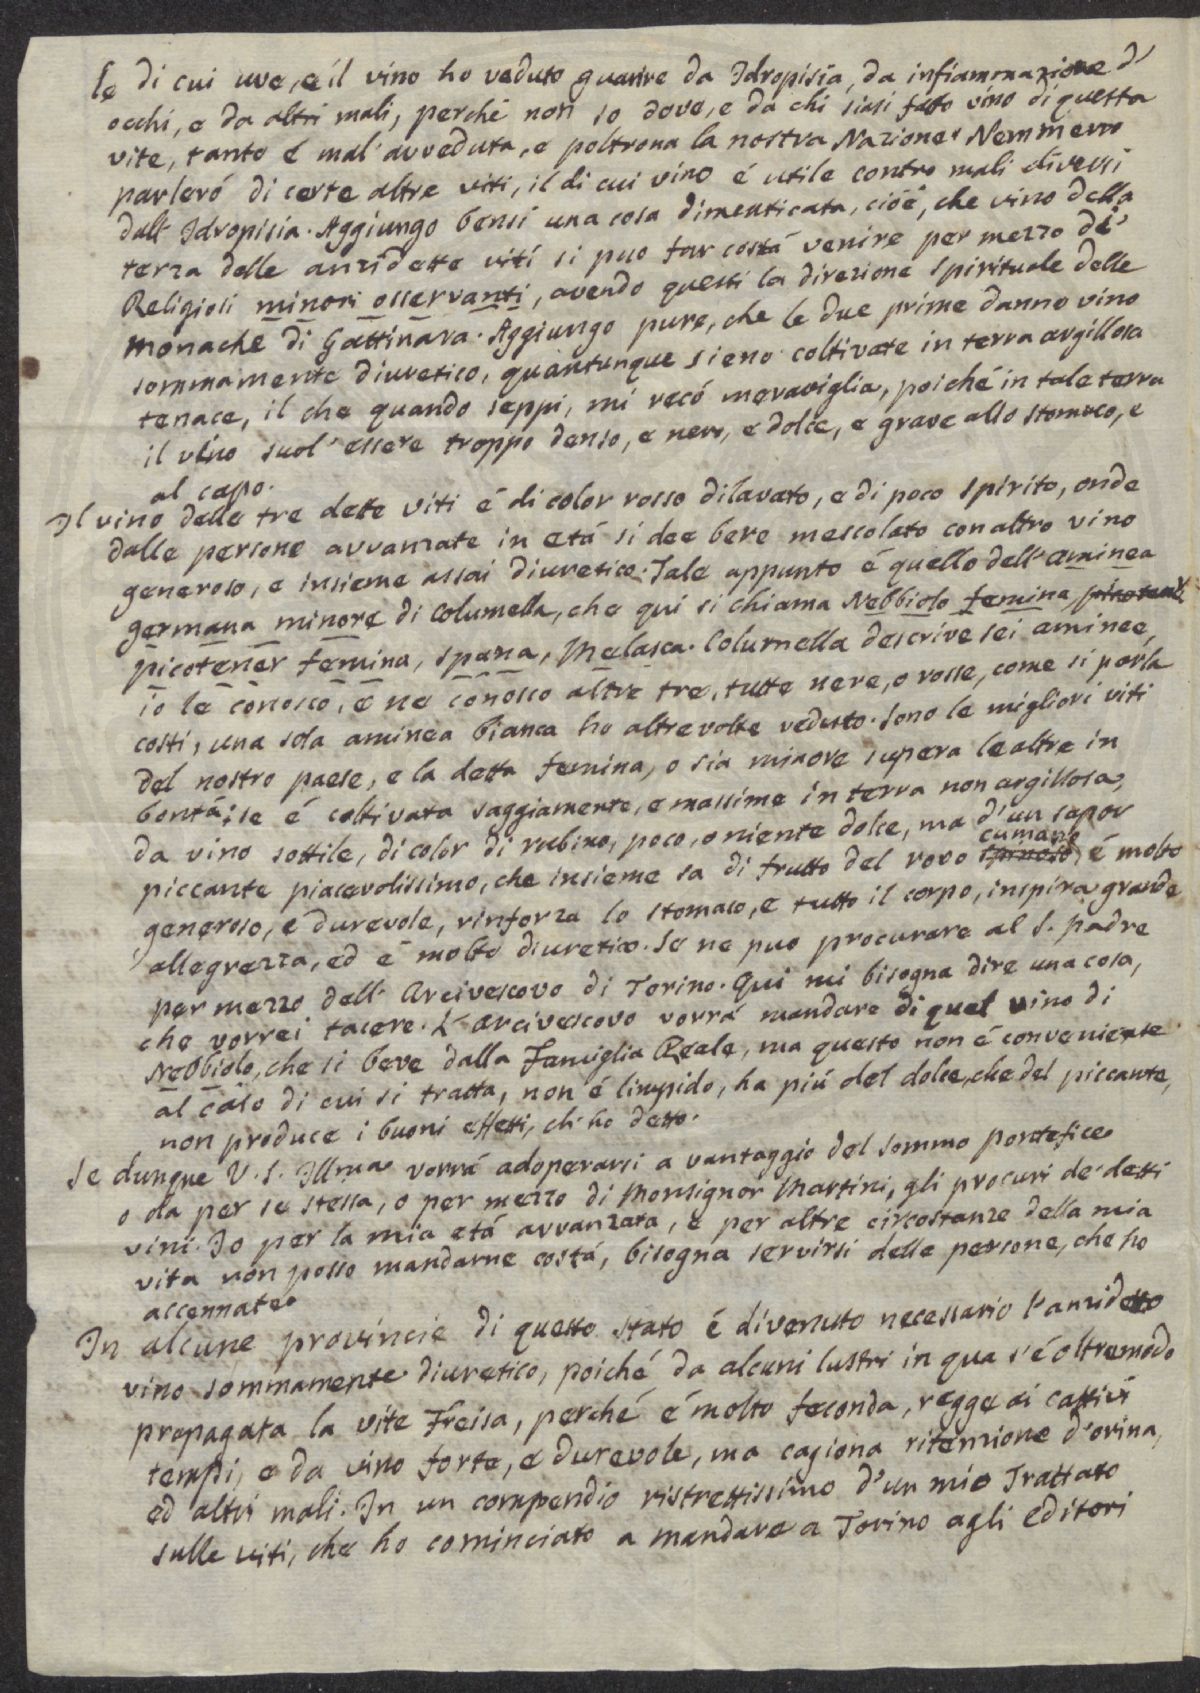 le di cui uve, e il vino ho veduto guarire da Idropisia, da infiammazione d'
occhi, e da altri mali, perché non so dove, e da chi siasi fatto vino di questa
vite, tanto é mal'avveduta, e poltrona la nostra Nazione. Nemmeno
parleró di certe altre viti, il di cui vino é utile contro mali diversi
dall'Idropisia. Aggiungo bensi una cosa dimenticata, cioé, che vino della
terza delle anzidette viti si puo far costá venire per mezzo de'
Religiosi minori osservanti, avendo questi la direzione spirituale delle
monache di Gattinara. Aggiungo pure, che le due prime danno vino
sommamente diuretico, quantunque sieno coltivate in terra argillosa
tenace, il che quando seppi, mi recó meraviglia, poiché in tale terra
il vino suol'essere troppo denso, e nero, e dolce, e grave allo stomaco, e
al capo.
Il vino delle tre dette viti é di color rosso dilavato, e di poco spirito, onde
dalle persone avvanzate in etá si dee bere mescolato con altro vino
generoso, e insieme assai diuretico. Tale appunto é quello dell'aminea
germana minore di Columella, che qui si chiama Nebbiolo femina,
picotener femina, spana, Melasca. Columella descrive sei aminee,
io le conosco, e ne conosco altre tre, tutte nere, o rosse, come si parla
costi, una sola aminea bianca ho altre volte veduto. Sono le migliori viti
del nostro paese, e la detta femina, o sia minore supera le altre in
bontá: se é coltivata saggiamente, e massime in terra non argillosa,
da vino sottile, di color di rubino, poco, o niente dolce, ma d'un sapor
piccante piacevolissimo, che insieme sa di frutto del rovo spinoso, é molto
generoso, e durevole, rinforza lo stomaco, e tutto il corpo, inspira grande
allegrezza, ed é molto diuretico. Se ne puo procurare al S. padre
per mezzo dell'Arcivescovo di Torino. Qui mi bisogna dire una cosa,
che vorrei tacere. L'arcivescovo vorrá mandare di quel vino di
Nebbiolo, che si beve dalla Famiglia Reale, ma questo non é conveniente
al caso di cui si tratta, non é limpido, ha piú del dolce, che del piccante,
non produce i buoni effetti, ch'ho detto.
Se dunque V. S. Illma vorrá adoperarsi a vantaggio del sommo pontefice
o da per se stessa, o per mezzo di Monsignor Martini, gli procuri de' detti
vini. Io per la mia etá avvanzata, e per altre circostanze della mia
vita non posso mandarne costá, bisogna servirsi delle persone, che ho
accennate.
In alcune provincie di questo stato é divenuto necessario l'anzidetto
vino sommamente diuretico, poiché da alcuni lustri in qua s'é oltremodo
propagata la vite Freisa, perché é molto feconda, regge ai cattivi
tempi, e da vino forte, e durevole, ma cagiona ritenzione d'orina,
ed altri mali. In un compendio ristrettissimo d'un mio Trattato
sulle viti, che ho cominciato a mandare a Torino agli Editori